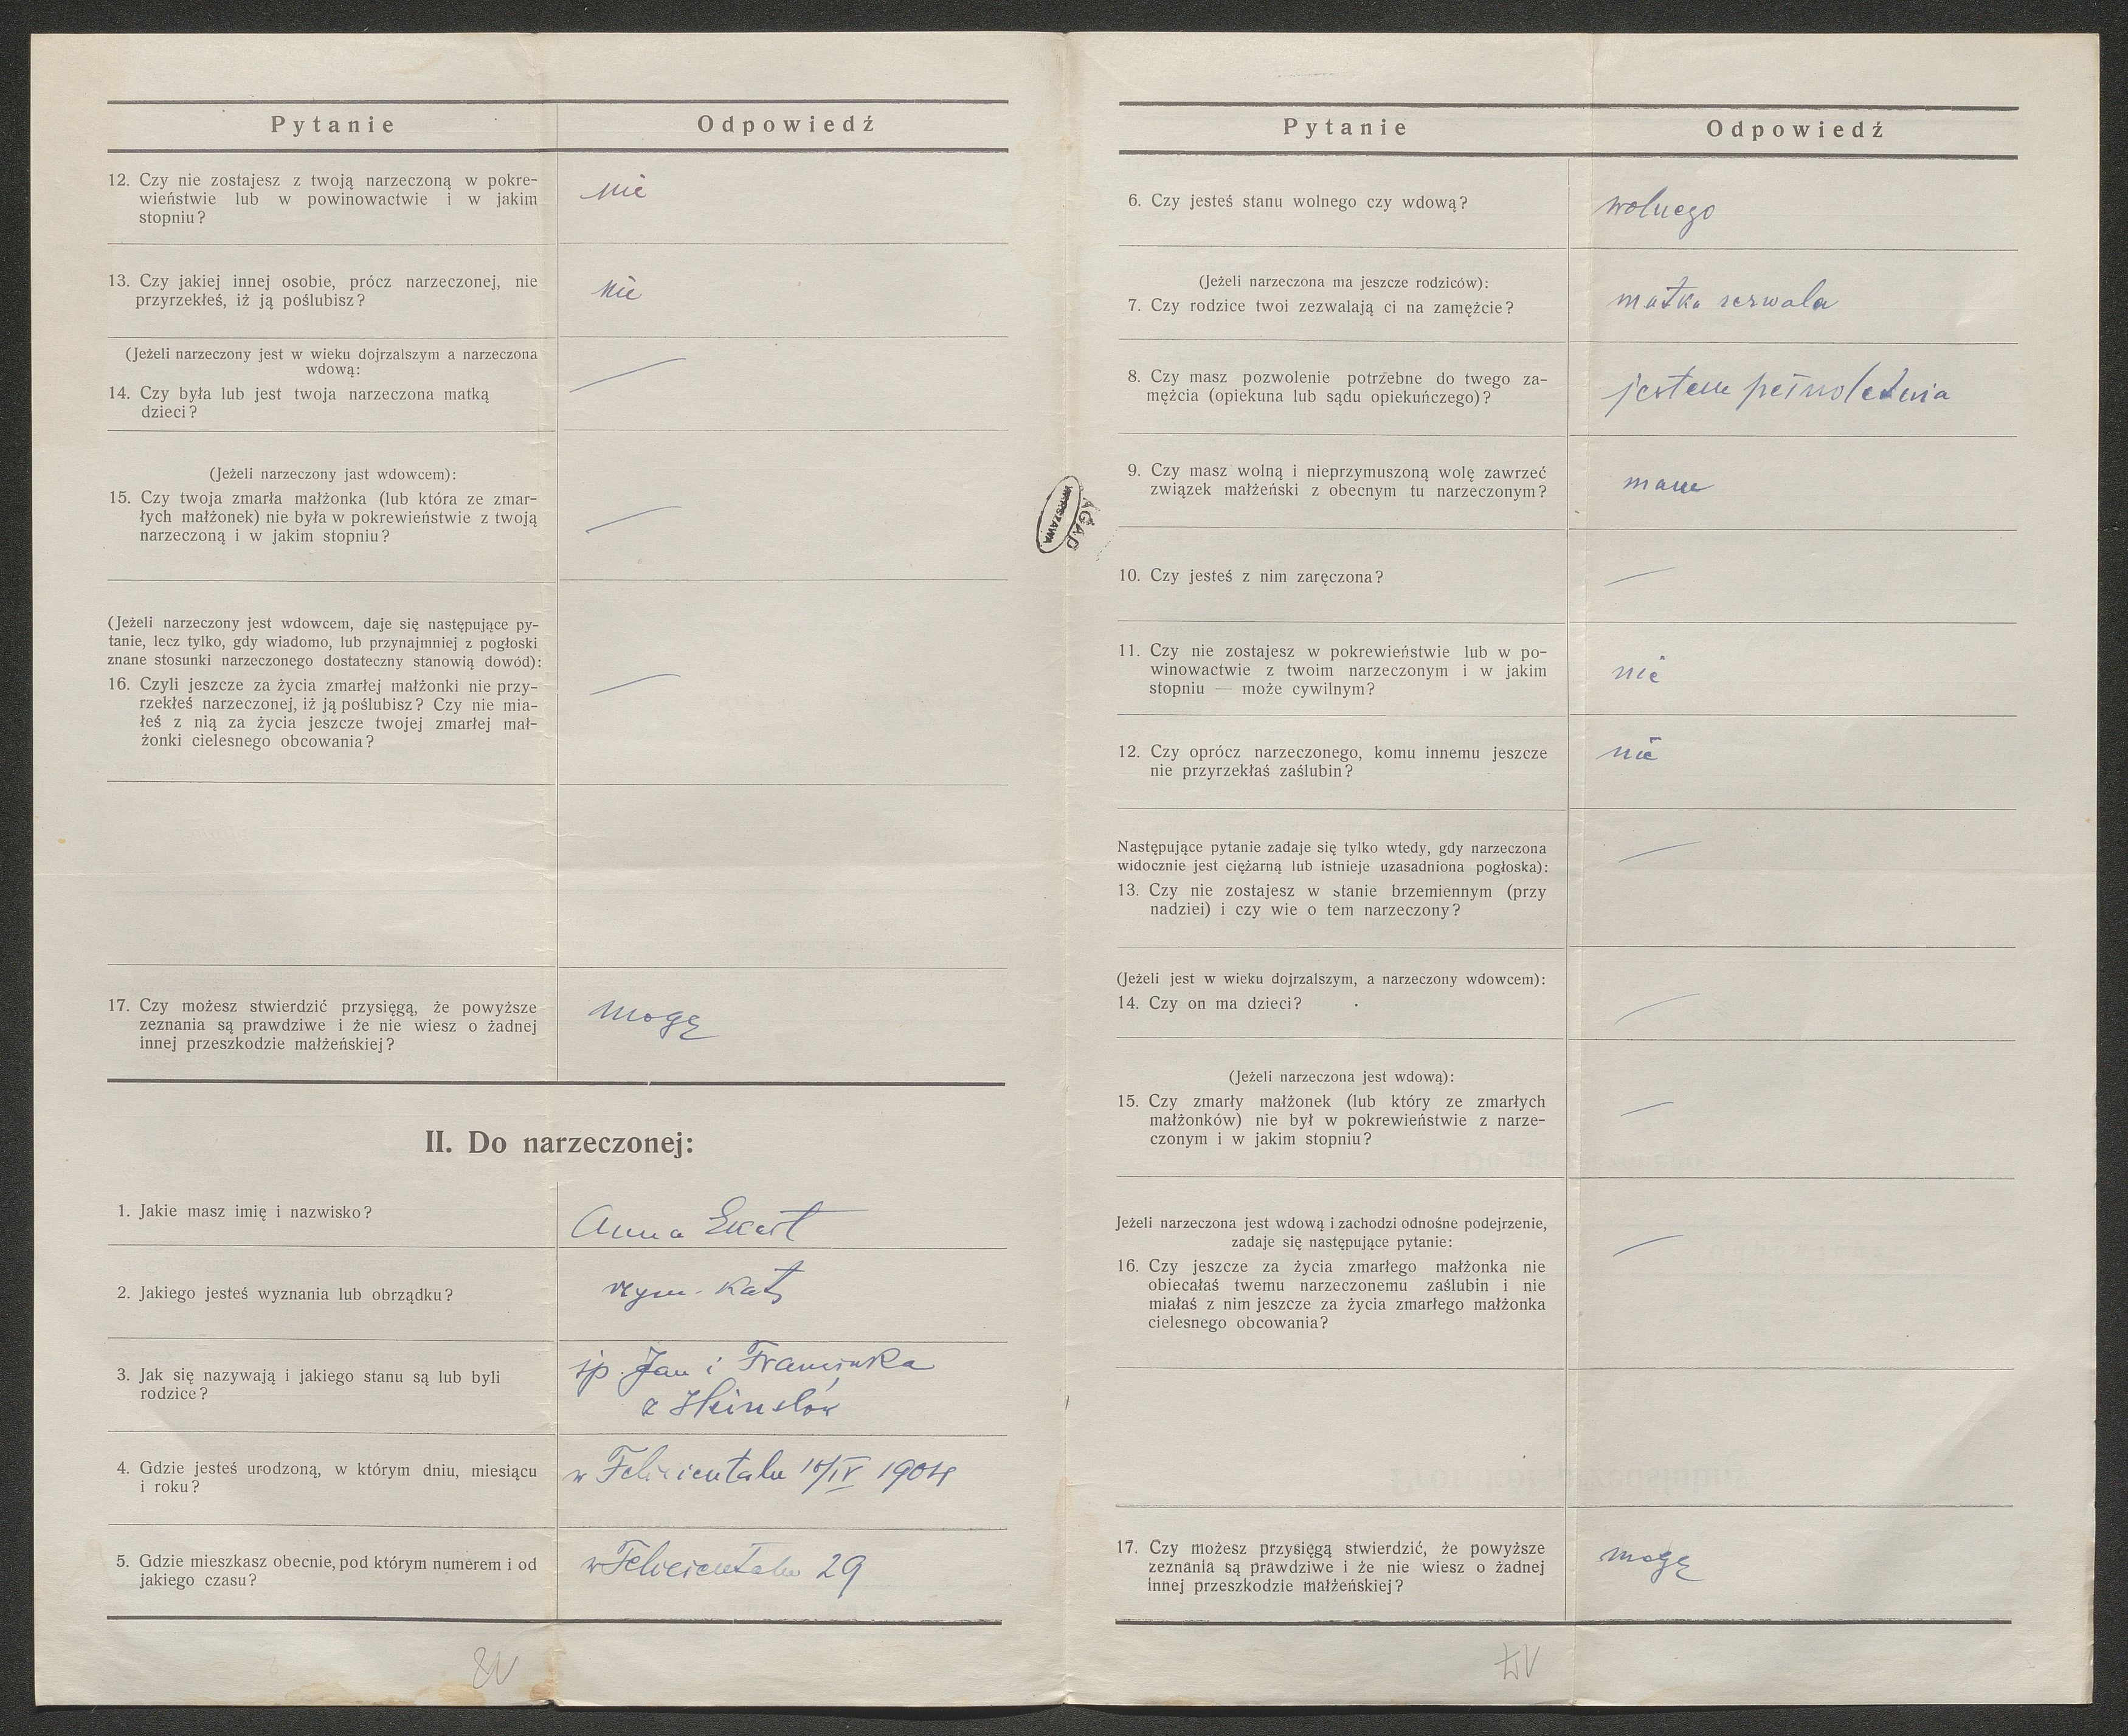 Pytanie Odpowiedź
12. Czy nie zostajesz z twoją narzeczoną w pokre-
wieństwie lub w powinowactwie i w jakim
stopniu?
nie
13. Czy jakiej innej osobie, prócz narzeczonej, nie
przyrzekłeś, iż ją poślubisz?
nie
(Jeżeli narzeczony jest w wieku dojrzalszym a narzeczona
wdową:
14. Czy była lub jest twoja narzeczona matką
dzieci?
—
(Jeżeli narzeczony jast wdowcem):
15. Czy twoja zmarła małżonka (lub która ze zmar-
łych małżonek) nie była w pokrewieństwie z twoją
narzeczoną i w jakim stopniu?
—
(Jeżeli narzeczony jest wdowcem, daje się następujące py-
tanie, lecz tylko, gdy wiadomo, lub przynajmniej z pogłoski
znane stosunki narzeczonego dostateczny stanowią dowód):
16. Czyli jeszcze za życia zmarłej małżonki nie przy-
rzekłeś narzeczonej, iż ją poślubisz? Czy nie mia-
łeś z nią za życia jeszcze twojej zmarłej mał-
żonki cielesnego obcowania?
—
17. Czy możesz stwierdzić przysięgą, że powyższe
zeznania są prawdziwe i że nie wiesz o żadnej
innej przeszkodzie małżeńskiej?
mogę
II. Do narzeczonej:
1. Jakie masz imię i nazwisko?
Anna Ekert
2. Jakiego jesteś wyznania lub obrządku?
rzym-kat
3. Jak się nazywają i jakiego stanu są lub byli
rodzice?
śp. Jan i Franciszka
z
4. Gdzie jesteś urodzoną, w którym dniu, miesiącu
i roku?
w Felicientalu /IV 1904
5. Gdzie mieszkasz obecnie, pod którym numerem i od
jakiego czasu?
w Felicientalu 29
Pytanie Odpowiedź
6. Czy jesteś stanu wolnego czy wdową?
wolnego
(Jeżeli narzeczona ma jeszcze rodziców):
7. Czy rodzice twoi zezwalają ci na zamężcie?
matka zezwala
8. Czy masz pozwolenie potrzebne do twego za-
mężcia (opiekuna lub sądu opiekuńczego)?
jestem pełnoletnia
9. Czy masz wolną i nieprzymuszoną wolę zawrzeć
związek małżeński z obecnym tu narzeczonym?
mam
10. Czy jesteś z nim zaręczona?
—
11. Czy nie zostajesz w pokrewieństwie lub w po-
winowactwie z twoim narzeczonym i w jakim
stopniu — może cywilnym?
nie
12. Czy oprócz narzeczonego, komu innemu jeszcze
nie przyrzekłaś zaślubin?
nie
Następujące pytanie zadaje się tylko wtedy, gdy narzeczona
widocznie jest ciężarną lub istnieje uzasadniona pogłoska):
13. Czy nie zostajesz w stanie brzemiennym (przy
nadziei) i czy wie o tem narzeczony?
—
(Jeżeli jest w wieku dojrzalszym, a narzeczony wdowcem):
14. Czy on ma dzieci?
—
(Jeżeli narzeczona jest wdową):
15. Czy zmarły małżonek (lub który ze zmarłych
małżonków) nie był w pokrewieństwie z narze-
czonym i w jakim stopniu?
—
Jeżeli narzeczona jest wdową i zachodzi odnośne podejrzenie,
zadaje się następujące pytanie:
16. Czy jeszcze za życia zmarłego małżonka nie
obiecałaś twemu narzeczonemu zaślubin i nie
miałaś z nim jeszcze za życia zmarłego małżonka
cielesnego obcowania?
—
17. Czy możesz przysięgą stwierdzić, że powyższe
zeznania są prawdziwe i że nie wiesz o żadnej
innej przeszkodzie małżeńskiej?
mogę
AGAD
WARSZAWA